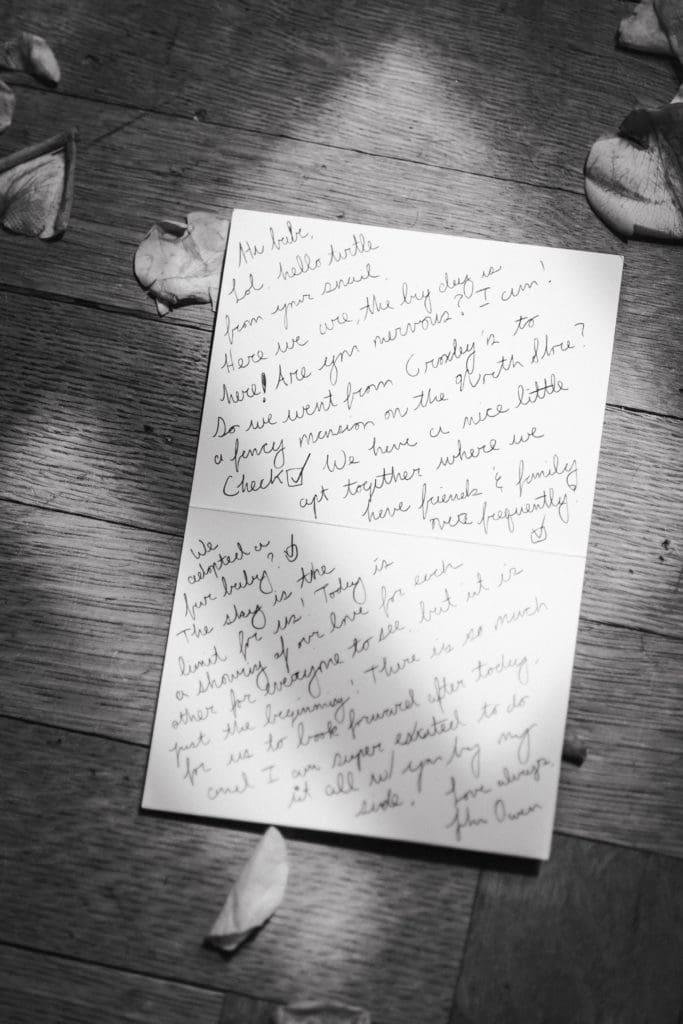 Hi babe,
Lol. hello turtle
from your snail.
Here we are, the big day is
here! Are you nervous? I am!
So we went from Croxley's to
a fancy mansion on the North Shore?
Check ☑ We have a nice little
apt together where we
have friends & family
over frequently.
☑
We
adopted a
fur baby? ☑
The sky is the
limit for us! Today is
a showing of our love for each
other for everyone to see, but it is
just the beginning! There is so much
for us to look forward after today.
and I am super excited to do
it all w/ you by my
side. Love always,
John Owen